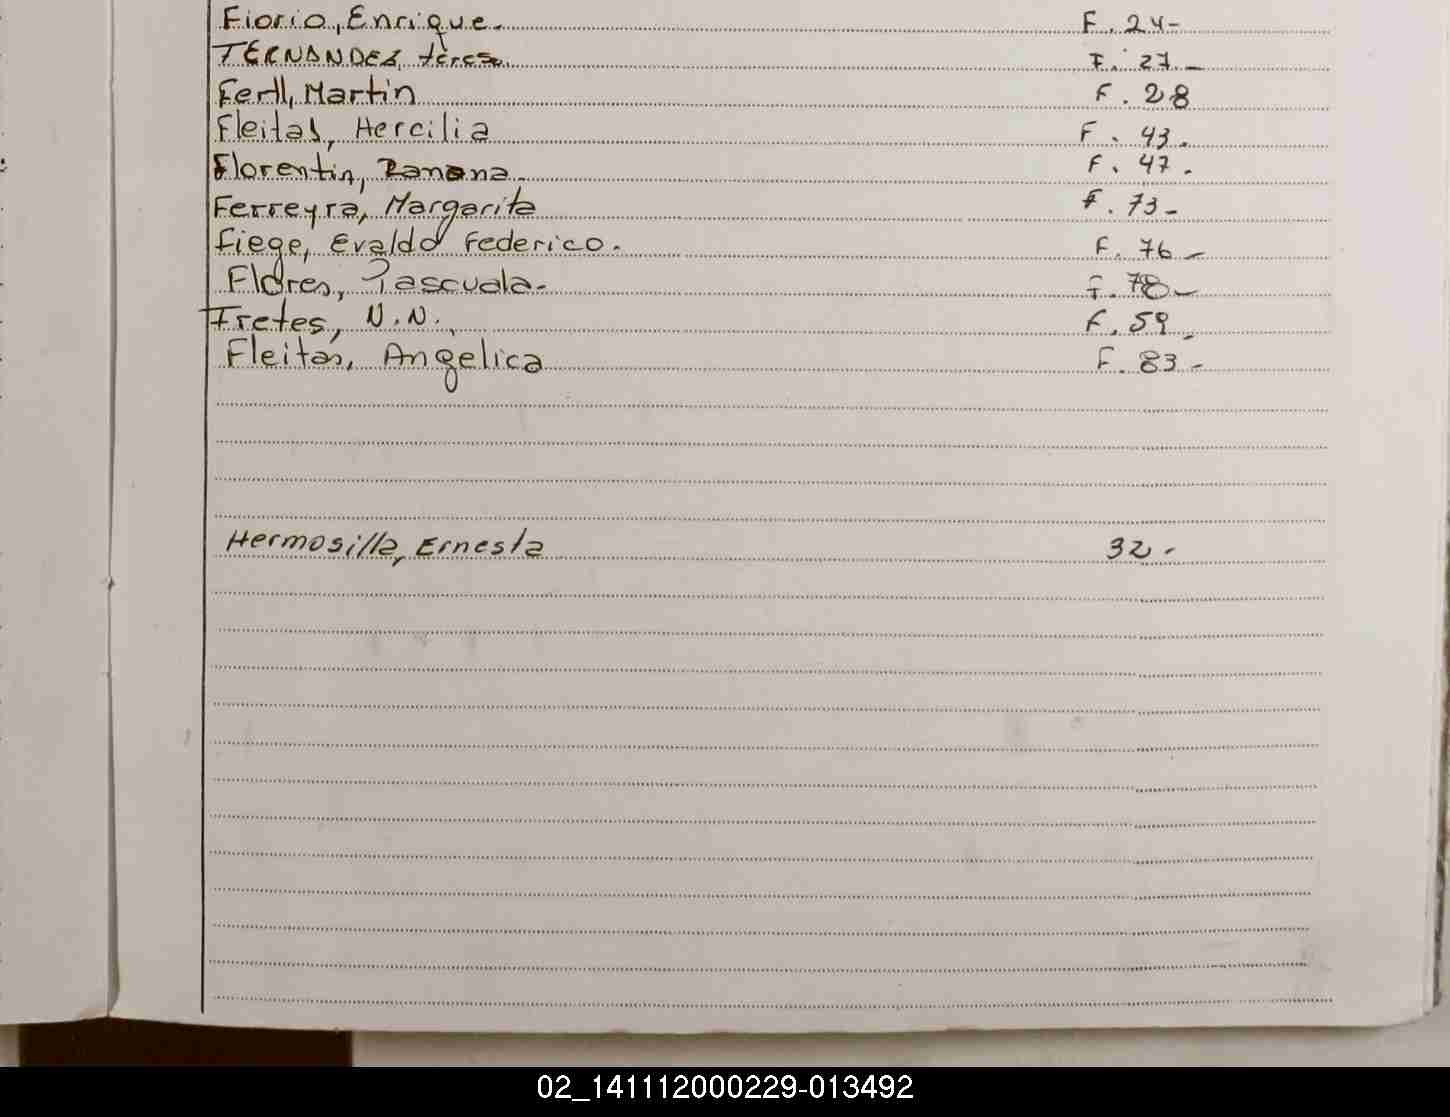 Fiorio, Enrique. F. 24-
FERNANDEZ, teresa. F. 27.-
Ferll, Martin F. 28
Fleitas, Hercilia F. 43.
Florentin, Ramona. F. 47.
Ferreyra, Margarita F. 73-
Fiege, Evaldo Federico. F. 76-
Flores, Pascuala.- F. 78-
Fretes, N.N. F. 59.
Fleitas, Angelica F. 83-
Hermosilla, Ernesta 32.-
02_141112000229-013492